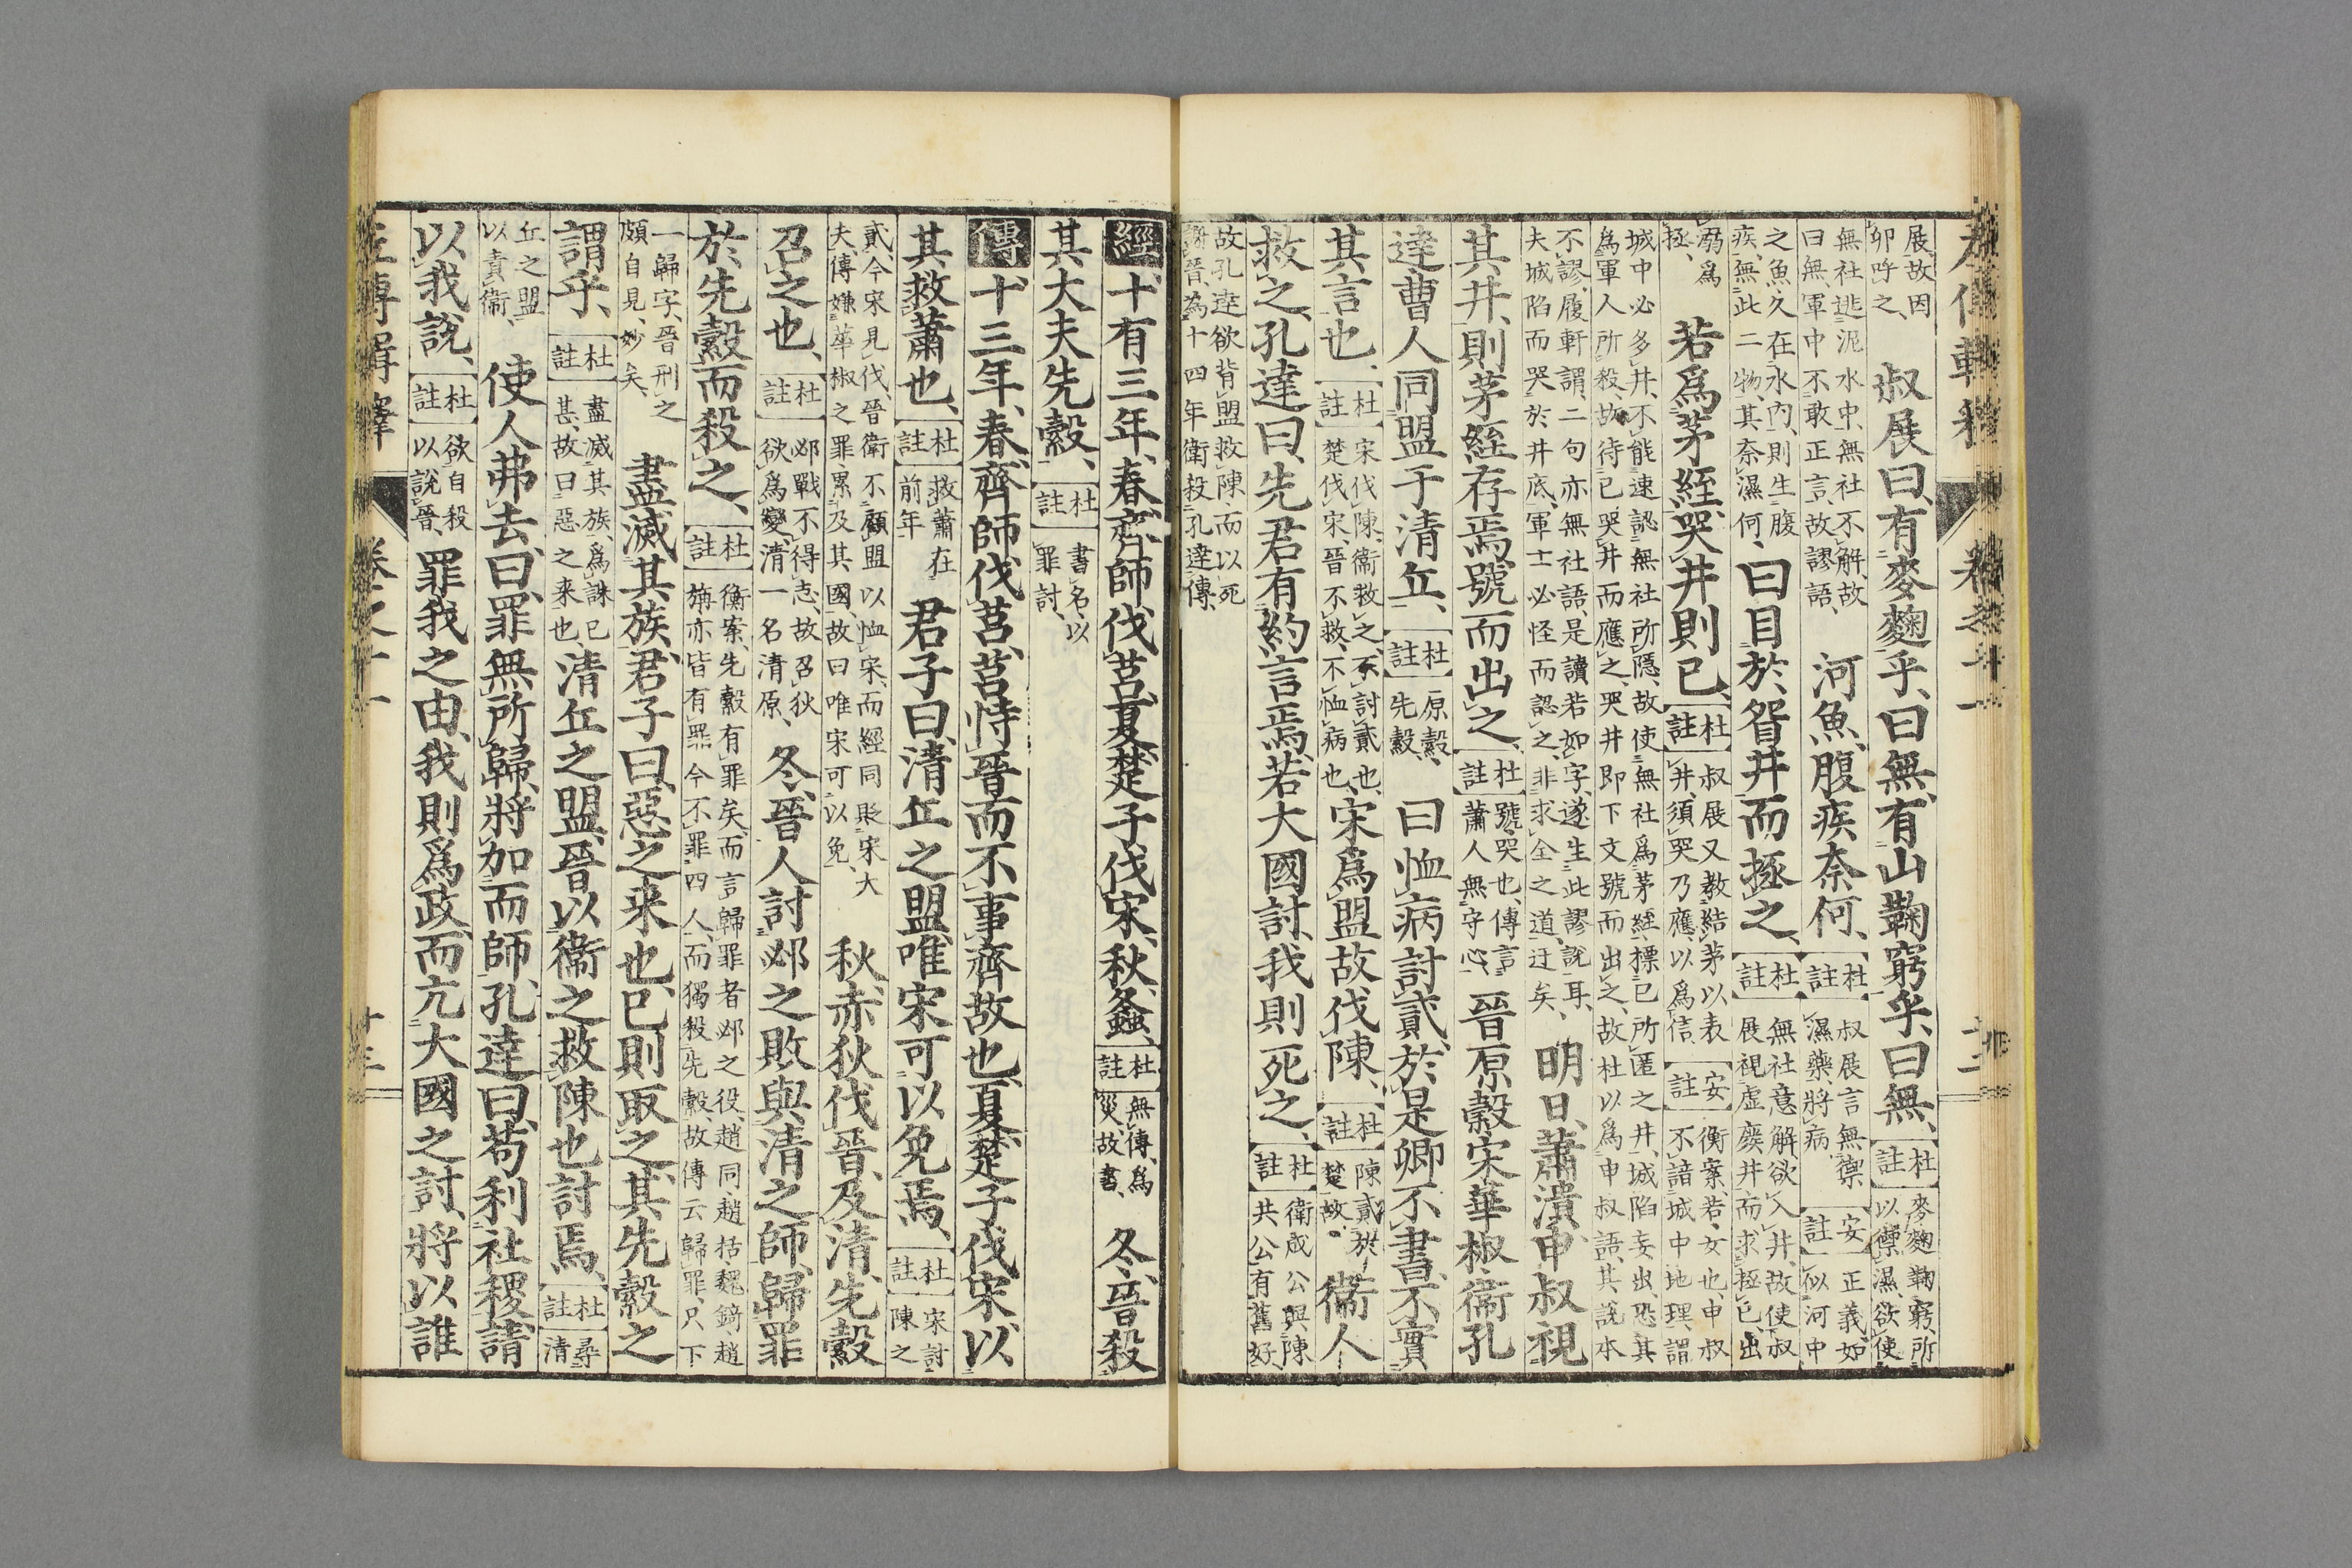 展、故因
卯呼之、
叔展曰、有麥麴乎、曰無、有山鞠窮乎、曰無、
杜註
麥麴鞠窮、所
以禦濕、欲使
無社逃泥水中、無社不解、故
曰無、軍中不敢正言、故謬語、
河魚腹疾奈何、
杜註
叔展言無禦
濕藥、將病、
安註
正義、如
似河中
之魚、久在水內、則生腹
疾、無此二物、其奈濕何、
曰目於眢井而拯之、
杜註
無社意解、欲入井、故使叔
展視虛廢井而求拯已、出
溺爲
拯、
若爲茅絰、哭井則已、
杜註
叔展又教結茅以表
井、須哭乃應、以爲信、
安註
衡案、若、女也、申叔
不諳城中地理、謂
城中必多井、不能速認無社所隱、故使無社爲茅絰標已所匿之井、城陷妄出、恐其
爲軍人所殺、故待已哭井而應之、哭井即下文號而出之、故杜以爲申叔語、其說本
不謬、履軒謂、二句亦無社語、是讀若如字、遂生此謬說耳、
夫城陷而哭於井底、軍士必怪而認之、非求全之道、迂矣、
明日、蕭潰、申叔視
其井、則茅絰存焉、號而出之、
杜註
號、哭也、傳言
蕭人無守心、
晉原縠宋華椒衞孔
達曹人同盟于清丘、
杜註
原縠、
先縠、
曰恤病討貳、於是卿不書、不實
其言也、
杜註
宋伐陳、衞救之、不討貳也、
楚伐宋、晉不救、不恤病也、
宋爲盟故伐陳、
杜註
陳貳於
楚故、
衞人
救之、孔達曰、先君有約言焉、若大國討、我則死之、
杜註
衞成公與陳
共公有舊好
故孔達欲背盟救陳、而以死
謝晉、為十四年衞殺孔達傳、
經十有三年、春、齊師伐莒、夏、楚子伐宋、秋、螽、
杜註
無傳、爲
災、故書、
冬、晉殺
其大夫先縠、
杜註
書名、以
罪討、
傳十三年、春、齊師伐莒、莒恃晉而不事齊故也、夏、楚子伐宋、以
其救蕭也、
杜註
救蕭在
前年
君子曰、清丘之盟、唯宋可以免焉、
杜註
宋討
陳之
貳、今宋見伐、晉衞不顧盟以恤宋、而經同貶宋大
夫、傳嫌華椒之罪累及其國、故曰唯宋可以免、
秋、赤狄伐晉、及清、先縠
召之也、
杜註
邲戰不得志、故召狄
欲爲變、清一名清原、
冬、晉人討邲之敗與清之師、歸罪
於先縠而殺之、
杜註
衡案、先縠有罪矣、而言歸罪者、邲之役、趙同、趙括、魏錡、趙
旃亦皆有罪、今不罪四人、而獨殺先縠、故傳云歸罪、只下
一歸字、晉刑之
頗自見、妙矣、
盡滅其族、君子曰、惡之來也、已則取之、其先縠之
謂乎、
杜註
盡滅其族、爲誅已
甚、故曰惡之來也、
清丘之盟、晉以衞之救陳也討焉、
杜註
尋清
丘之盟
以責衞、
使人弗去、曰、罪無所歸、將加而師、孔達曰、苟利社稷、請
以我說、
杜註
欲自殺
以說晉、
罪我之由、我則爲政、而亢大國之討、將以誰
左傳輯釋
卷之十一